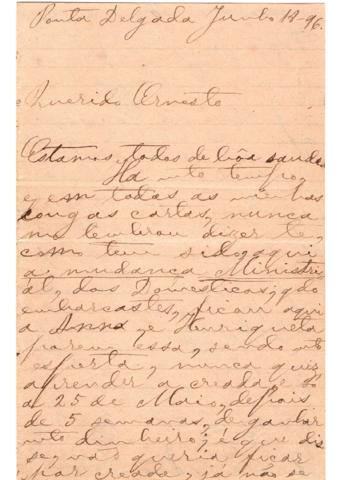 Ponta Delgada Junho 18-96.
Querido Ernesto
Estamos todos de bôa saude
Ha mto tempo,
e em todas as minhas
longas cartas, nunca
me lembrou dizer te,
como tem sido, aqui
a mudança Ministri
al, das Domesticas, qdo
embarcastes, ficou aqui
a Anna, e Henriqueta
porem essa, sendo mto
esperta, nunca quis
aprender a creada e
a 25 de Maio, depois
de 5 semanas, de ganhar
mto dinheiro, é que dis
se, não queria ficar
por creada, já não se